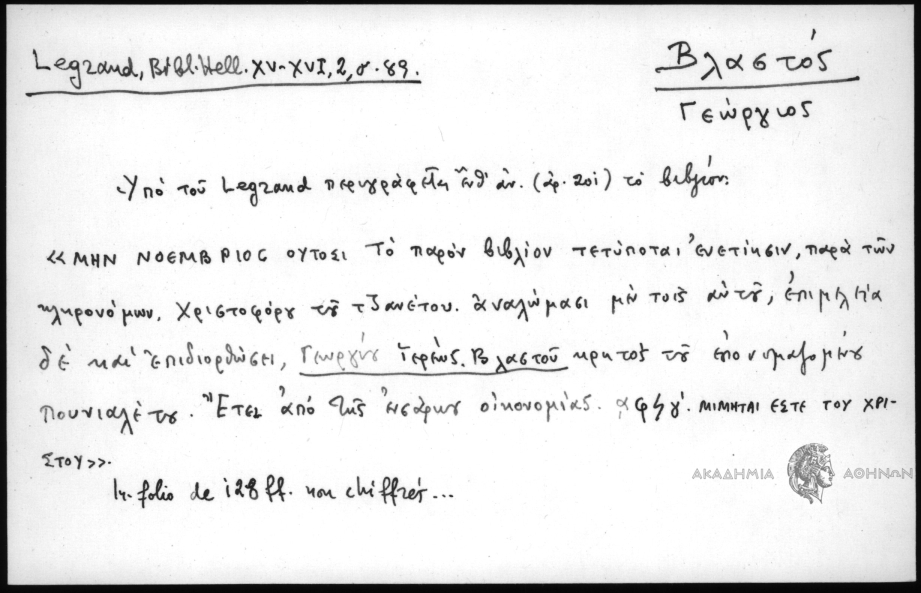 Legrand, Bibl. Hell. XV-XVI, 2, σ. 89.
Βλαστός
Γεώργιος
Ὑπό τοῦ Legrand περιγράφεται ἔνθ' ἀν. (ἀρ. 201) τὸ βιβλίον:
«ΜΗΝ ΝΟΕΜΒΡΙΟC ΟΥΤΟΣΙ Τὸ παρὸν βιβλίον τετύποται ἐνετίησιν, παρὰ τῶν
κληρονόμων. Χριστοφόρου τοῦ τζανέτου. ἀναλώμασι μὲν τοῖς αὐτοῦ, ἐπιμελεία
δὲ καὶ ἐπιδιορθώσει, Γεωργίου Ἱερέως. Βλαστοῦ κρητὸς τοῦ ἐπονομαζομένου
Πουνιαλέτου. Ἔτει ἀπό τῆς ἐνσάρκου οἰκονομίας. αφϟγ'. ΜΙΜΗΤΑΙ ΕΣΤΕ ΤΟΥ ΧΡΙ-
ΣΤΟΥ».
In-folio de 128 ff. non chiffrés...
ΑΚΑΔΗΜΙΑ ΑΘΗΝΩΝ